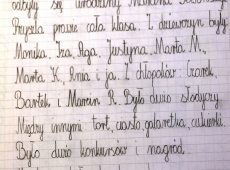 odbyły się urodziny
Przyszła prawie cała klasa. Z dziewczyn były:
Monika, Iza, Aga, Justyna, Marta M.,
Marta K., Ania i ja. Z chłopaków Czarek,
Bartek i Marcin R. Było dużo słodyczy.
Między innymi tort, ciasto, galaretka, cukierki.
Było dużo konkursów i nagród.